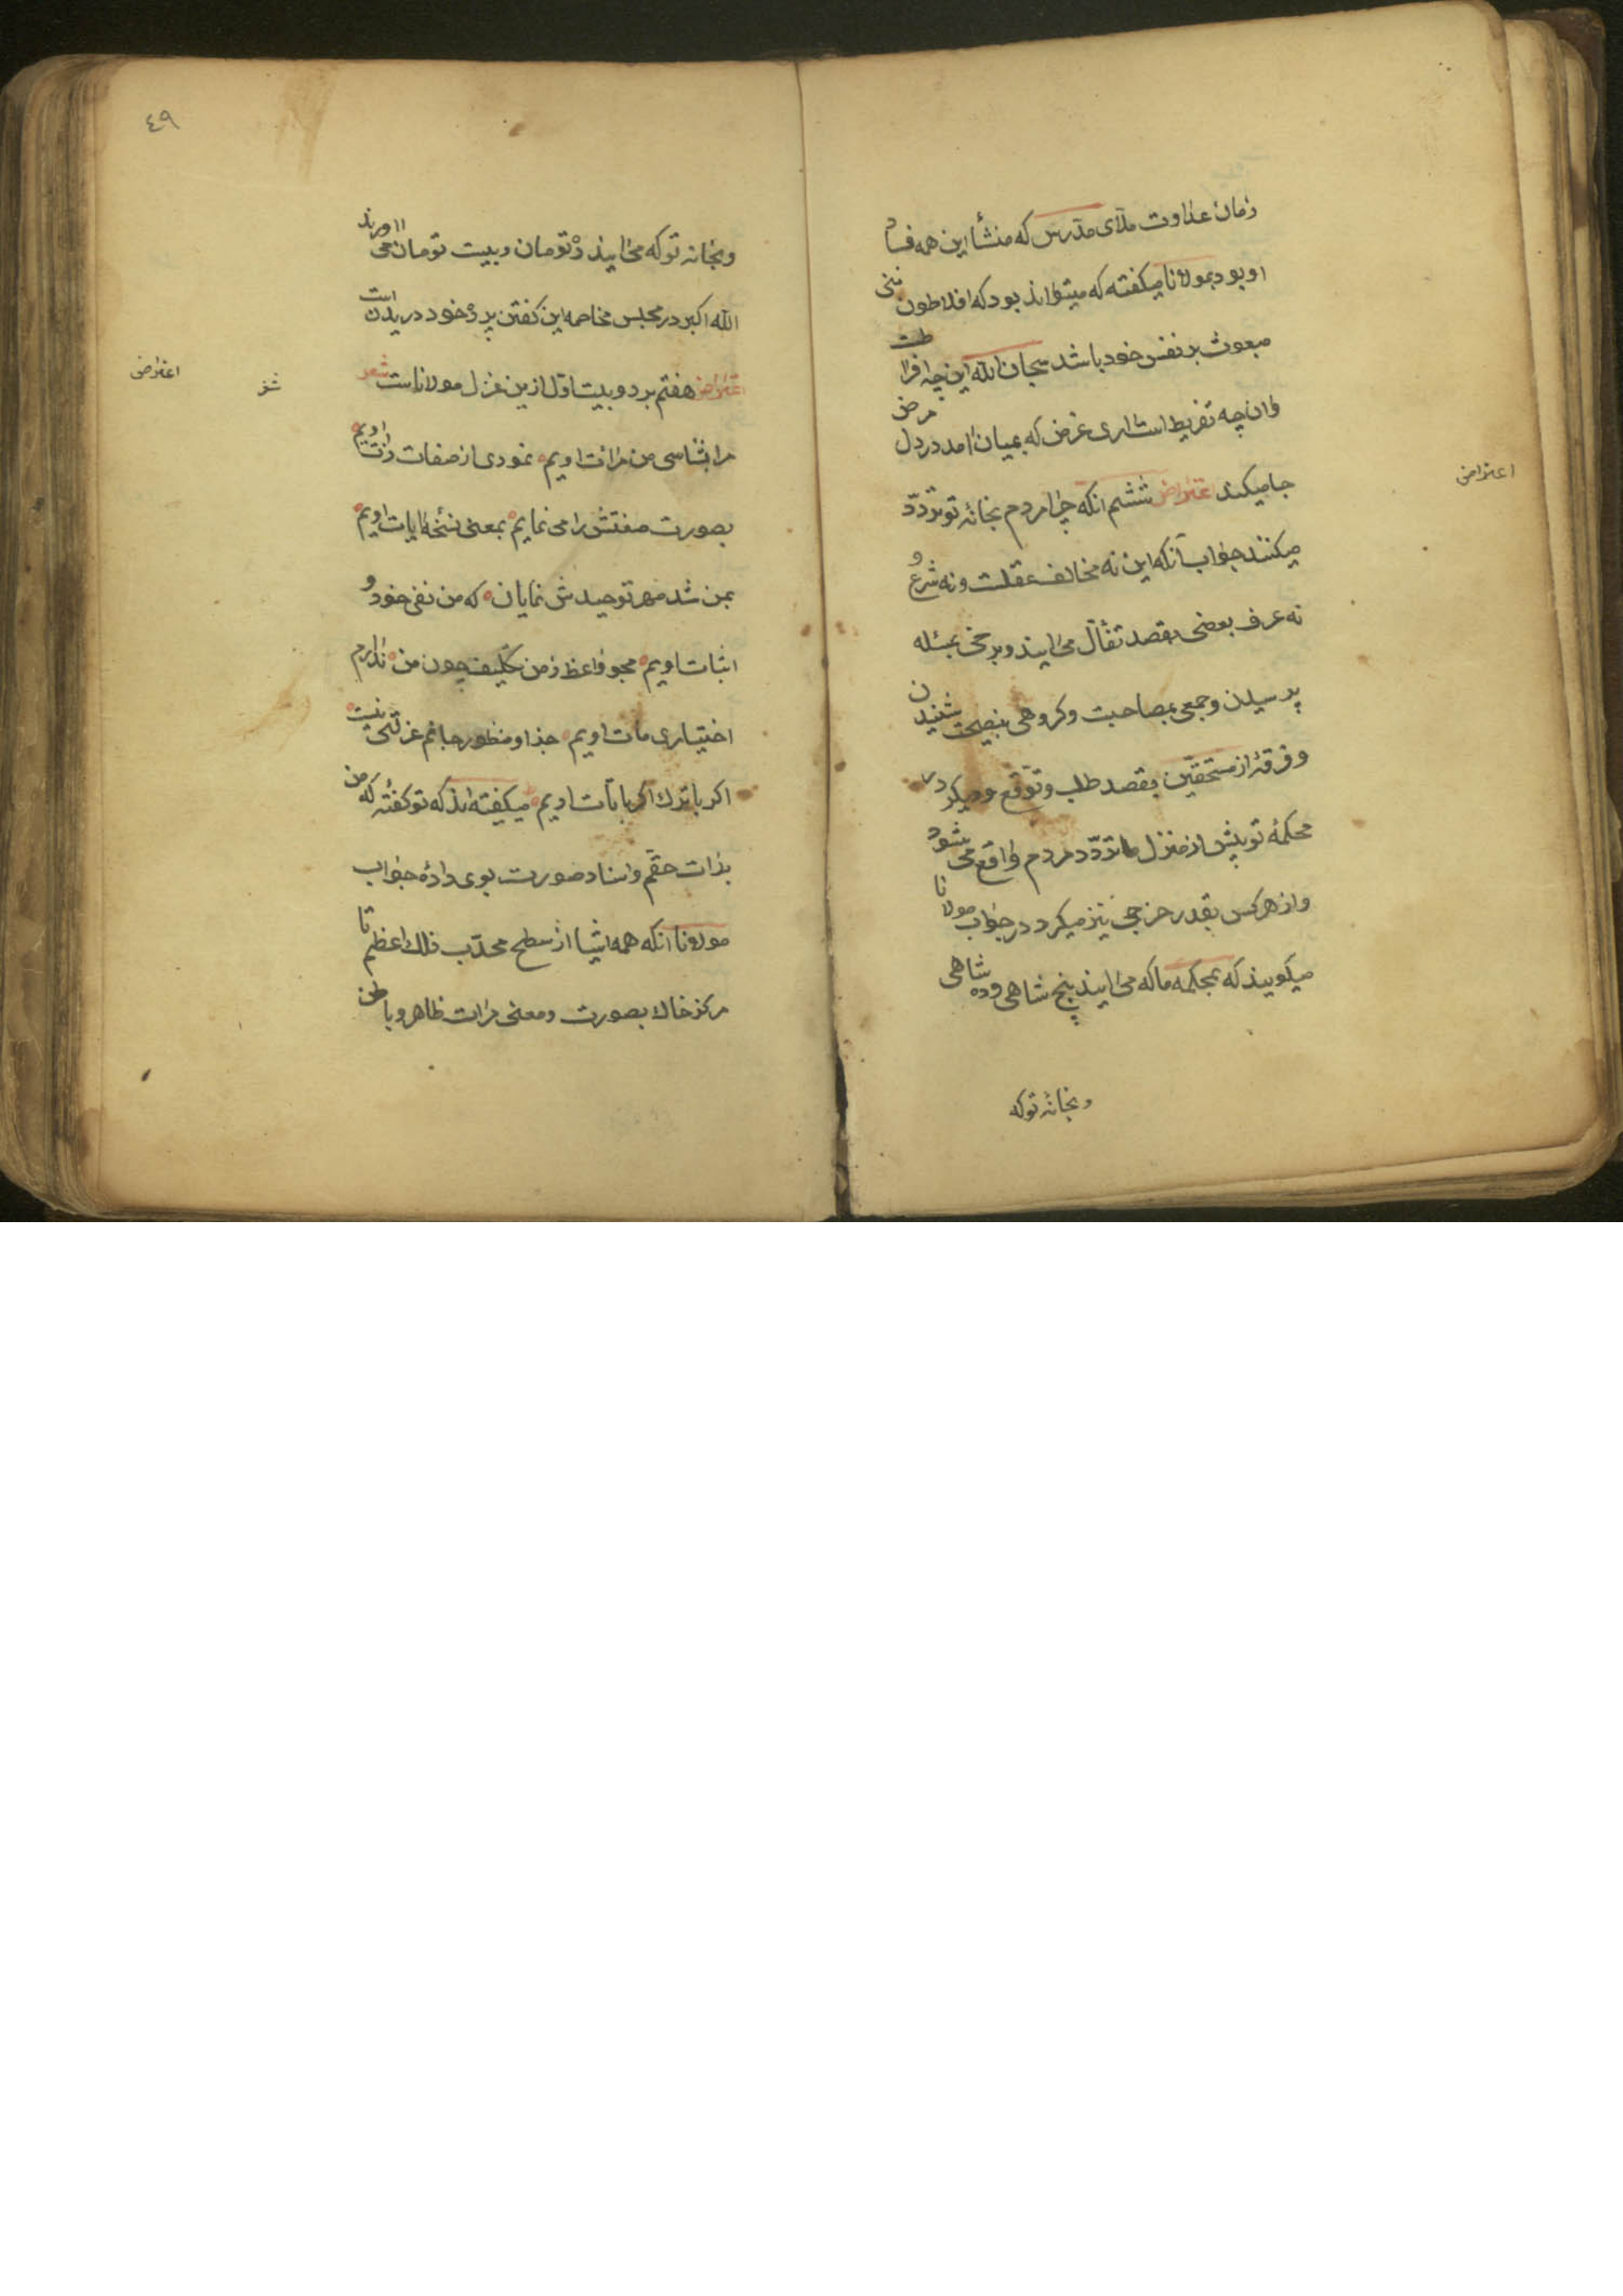 زمان عداوت ملای مدرس که منشأ این همه فساد
او بود بمولانا میکفته که میتواند بود که افلاطون نبی
مبعوث بر نفس خود باشد سبحان الله این چه افراطست
وان چه تفریط است اری غرض که بمیان امد در دل مرض
جا میکند اعتراض ششم انکه چرا مردم بخانۀ تو تردّد
میکنند جواب آنکه این نه مخالف عقلست و نه شرع و
نه عرف بعضی بقصد تفأّل می ایند و برخی بمسئله
پرسیدن و جمعی بمصاحبت و کروهی بنصیحت شنیدن
و فرقۀ از مستحقّین بقصد طلب و توقّع و میکرد در
محکمۀ تو بیش از منزل ما تردّد مردم واقع می شود
و از هر کس بقدر خرجی نیز میکرد در جواب مولانا
میکویند که بمحکمه ما که می ایند پنج شاهی و ده شاهی
و بخانۀ تو که
اعتراض
٤٩
و بخانۀ تو که می ایند ده تومان و بیست تومان می اورند
الله اکبر در مجلس مخاصمه این کفتن پردۀ خود دریدن است
اعتراض هفتم بر دو بیت اوّل ازین غزل مولاناست شعر
مرا بشناسی من مرات اویم نمودی از صفات ذات اویم
بصورت صفتش را می نمایم بمعنی نسخۀ ایات اویم
بمن شد مهر توحیدش نمایان که من نفی خود و
اثبات اویم مجو واعظ ز من تکلیف چون من ندارم
اختیاری مات اویم جز او منظور جانم غزلتی نیست
اکر با ترک اکر با تات اویم میکفته اند که تو کفتۀ که من
بذات حقّم و اسناد صورت بوی دادۀ جواب
مولانا انکه همه اشیا از سطح محدّب فلک اعظم تا
مرکز خاک بصورت و معنی مرات ظاهر و باطن
اعتراض
شعر